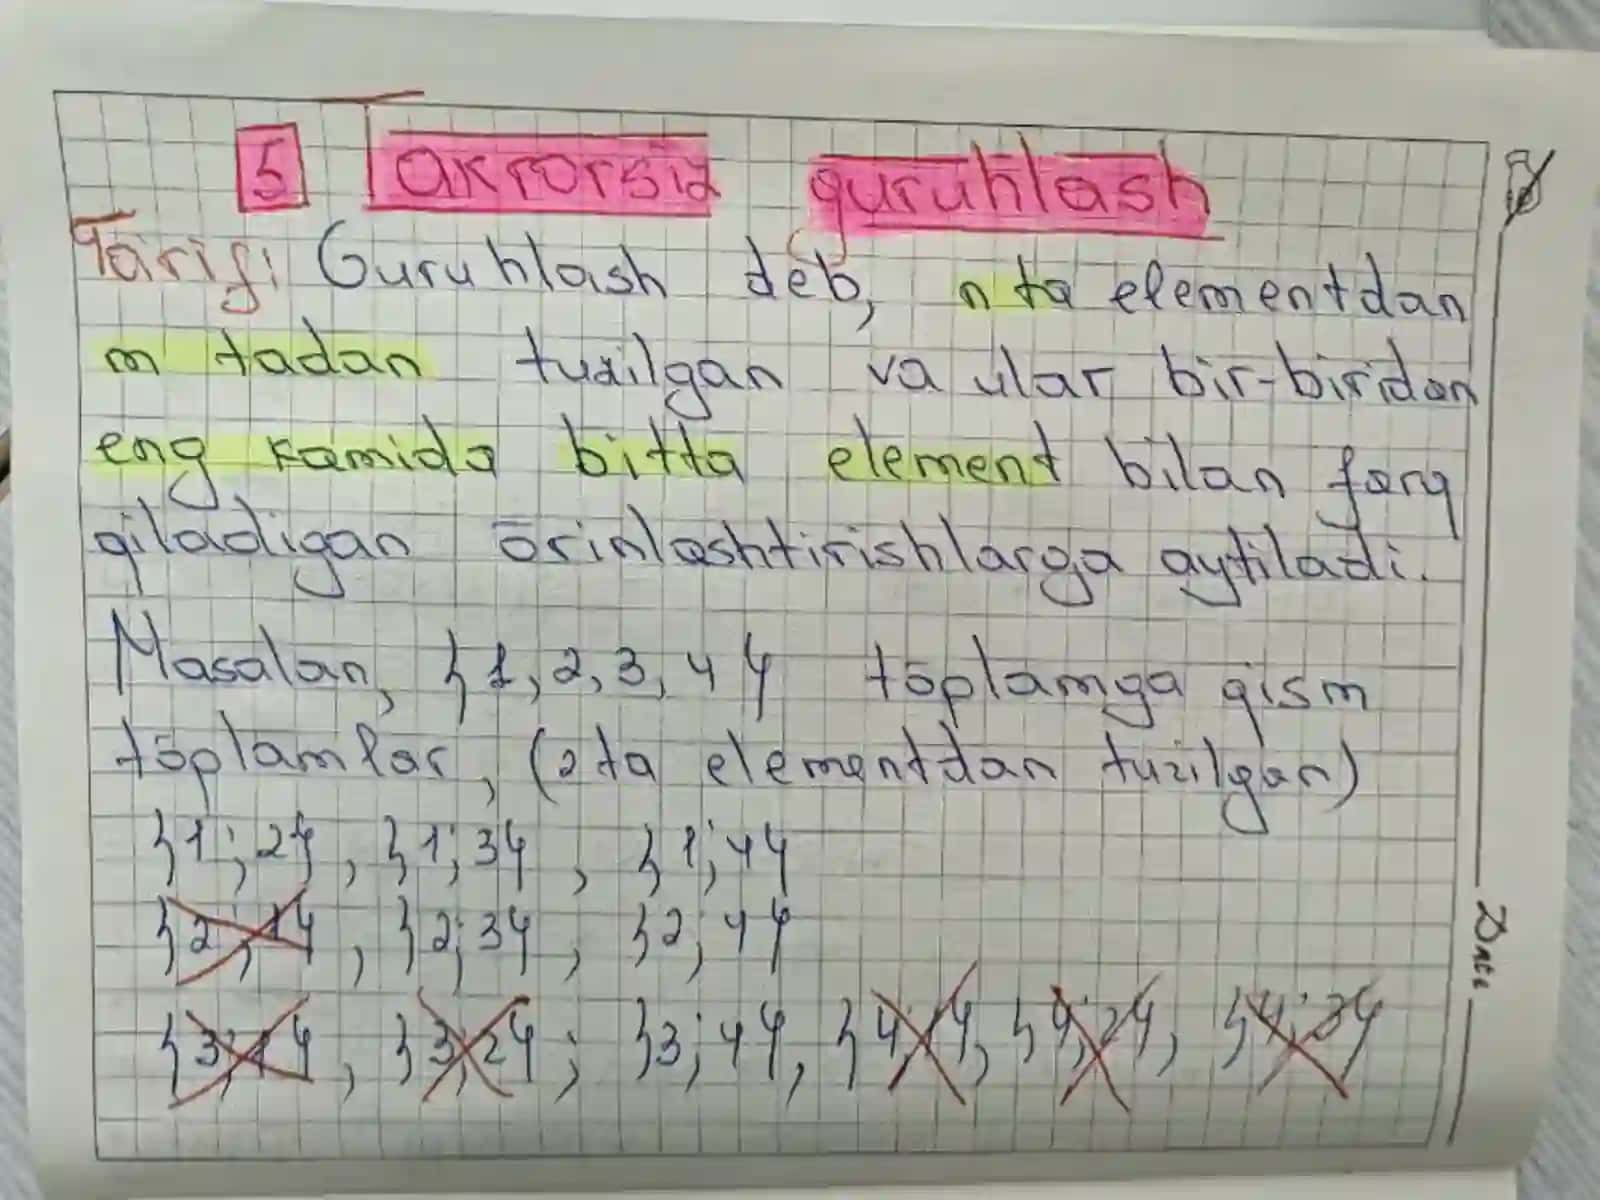 5 Takrorsiz guruhlash
Tarif: Guruhlash deb, n ta elementdan
m tadan tuzilgan va ular bir-biridan
eng kamida bitta element bilan farq
qiladigan ōrinlashtirishlarga aytiladi.
Masalan, {1, 2, 3, 4} tōplamga qism
tōplamlar, (2 ta elementdan tuzilgan)
{1; 2}, {1; 3}, {1; 4}
{2; 1}, {2; 3}, {2; 4}
{3; 1}, {3; 2}; {3; 4}, {4; 1}, {4; 2}, {4; 3}
Date